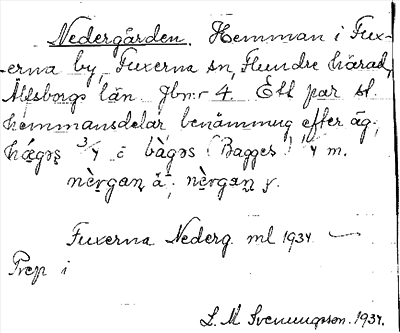 Nedergården. Hemman i Fux-
-erna by, Fuxerna sn, Flundre härad,
Älfsborgs län. Jbnr 4. Ett par st.
hemmansdelar, benämnng efter äg.,
hǽgəs 3/4 o bàgəs (Bagges) 1/4 m.
nèrgaɳ å, nèrgaɳ y.
Fuxerna Nederg. ml 1934
Prep i
L. M. Svenungsson. 1934.